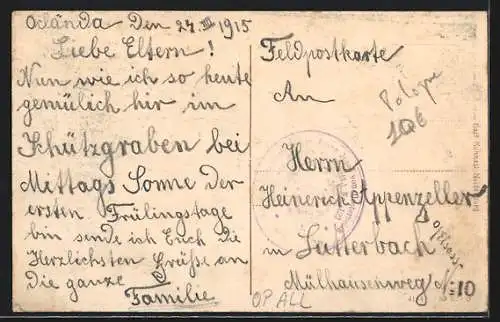 Oclanda Den 24. III 1915
Liebe Eltern!
Nun wie ich so heute
gemülich hir im
Schützgraben bei
Mittags Sonne der
ersten Frülingstage
bin sende ich Euch die
Herzlichsten Grüsse an
Die ganze
Familie
Feldpostkarte
An
Pologne
Herrn
Heinerick Appenzeller
in Lutterbach
Ob/Elsass
Mülhauserweg N: 10
OP ALL